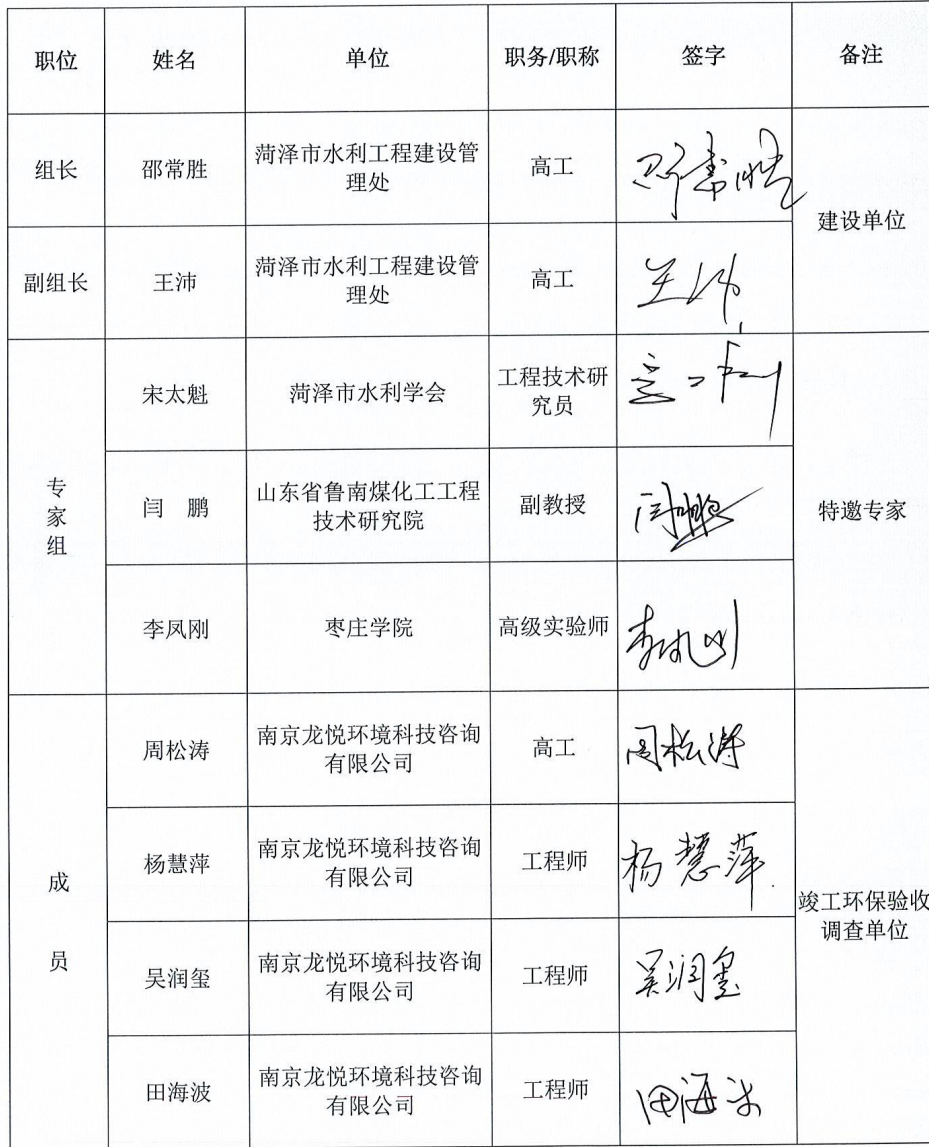 职位 姓名 单位 职务/职称 签字 备注
组长 邵常胜 菏泽市水利工程建设管
理处 高工 邵常胜 建设单位
副组长 王沛 菏泽市水利工程建设管
理处 高工 王沛
专
家
组
宋太魁 菏泽市水利学会 工程技术研
究员
闫 鹏 山东省鲁南煤化工工程
技术研究院 副教授 闫鹏 特邀专家
李凤刚 枣庄学院 高级实验师 李凤刚
成
员
周松涛 南京龙悦环境科技咨询
有限公司 高工 周松涛
杨慧萍 南京龙悦环境科技咨询
有限公司 工程师 杨慧萍 竣工环保验收
调查单位
吴润玺 南京龙悦环境科技咨询
有限公司 工程师 吴润玺
田海波 南京龙悦环境科技咨询
有限公司 工程师 田海波